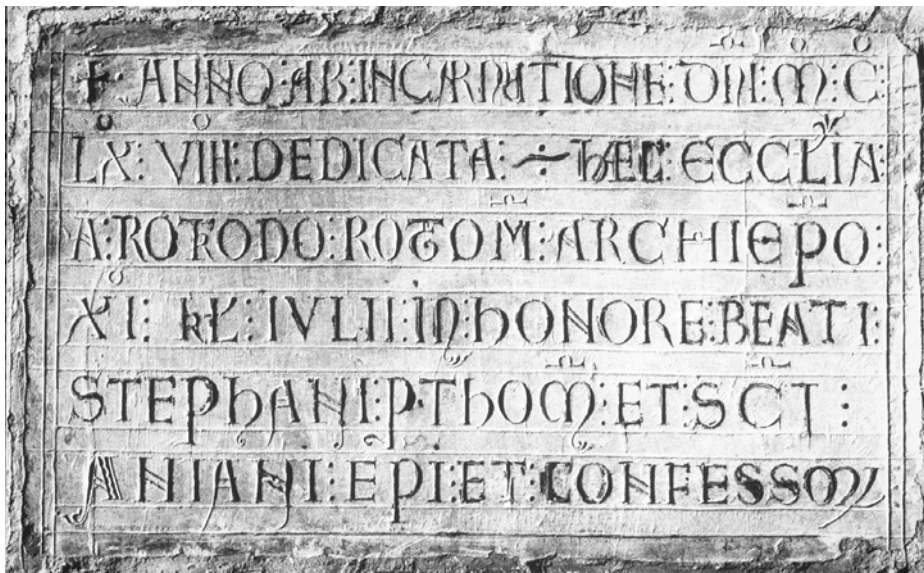 + ANNO : AB : INCARNATIONE : DNI : M : C :
LX : VIII : DEDICATA : ~ HÆC : ECCLIA
A : ROTRODO : ROTOM : ARCHIEPO :
XI : KL : IVLII : IN : HONORE : BEATI :
STEPHANI : P THOM : ET : SCI :
ANIANI : EPI : ET : CONFESSORIS